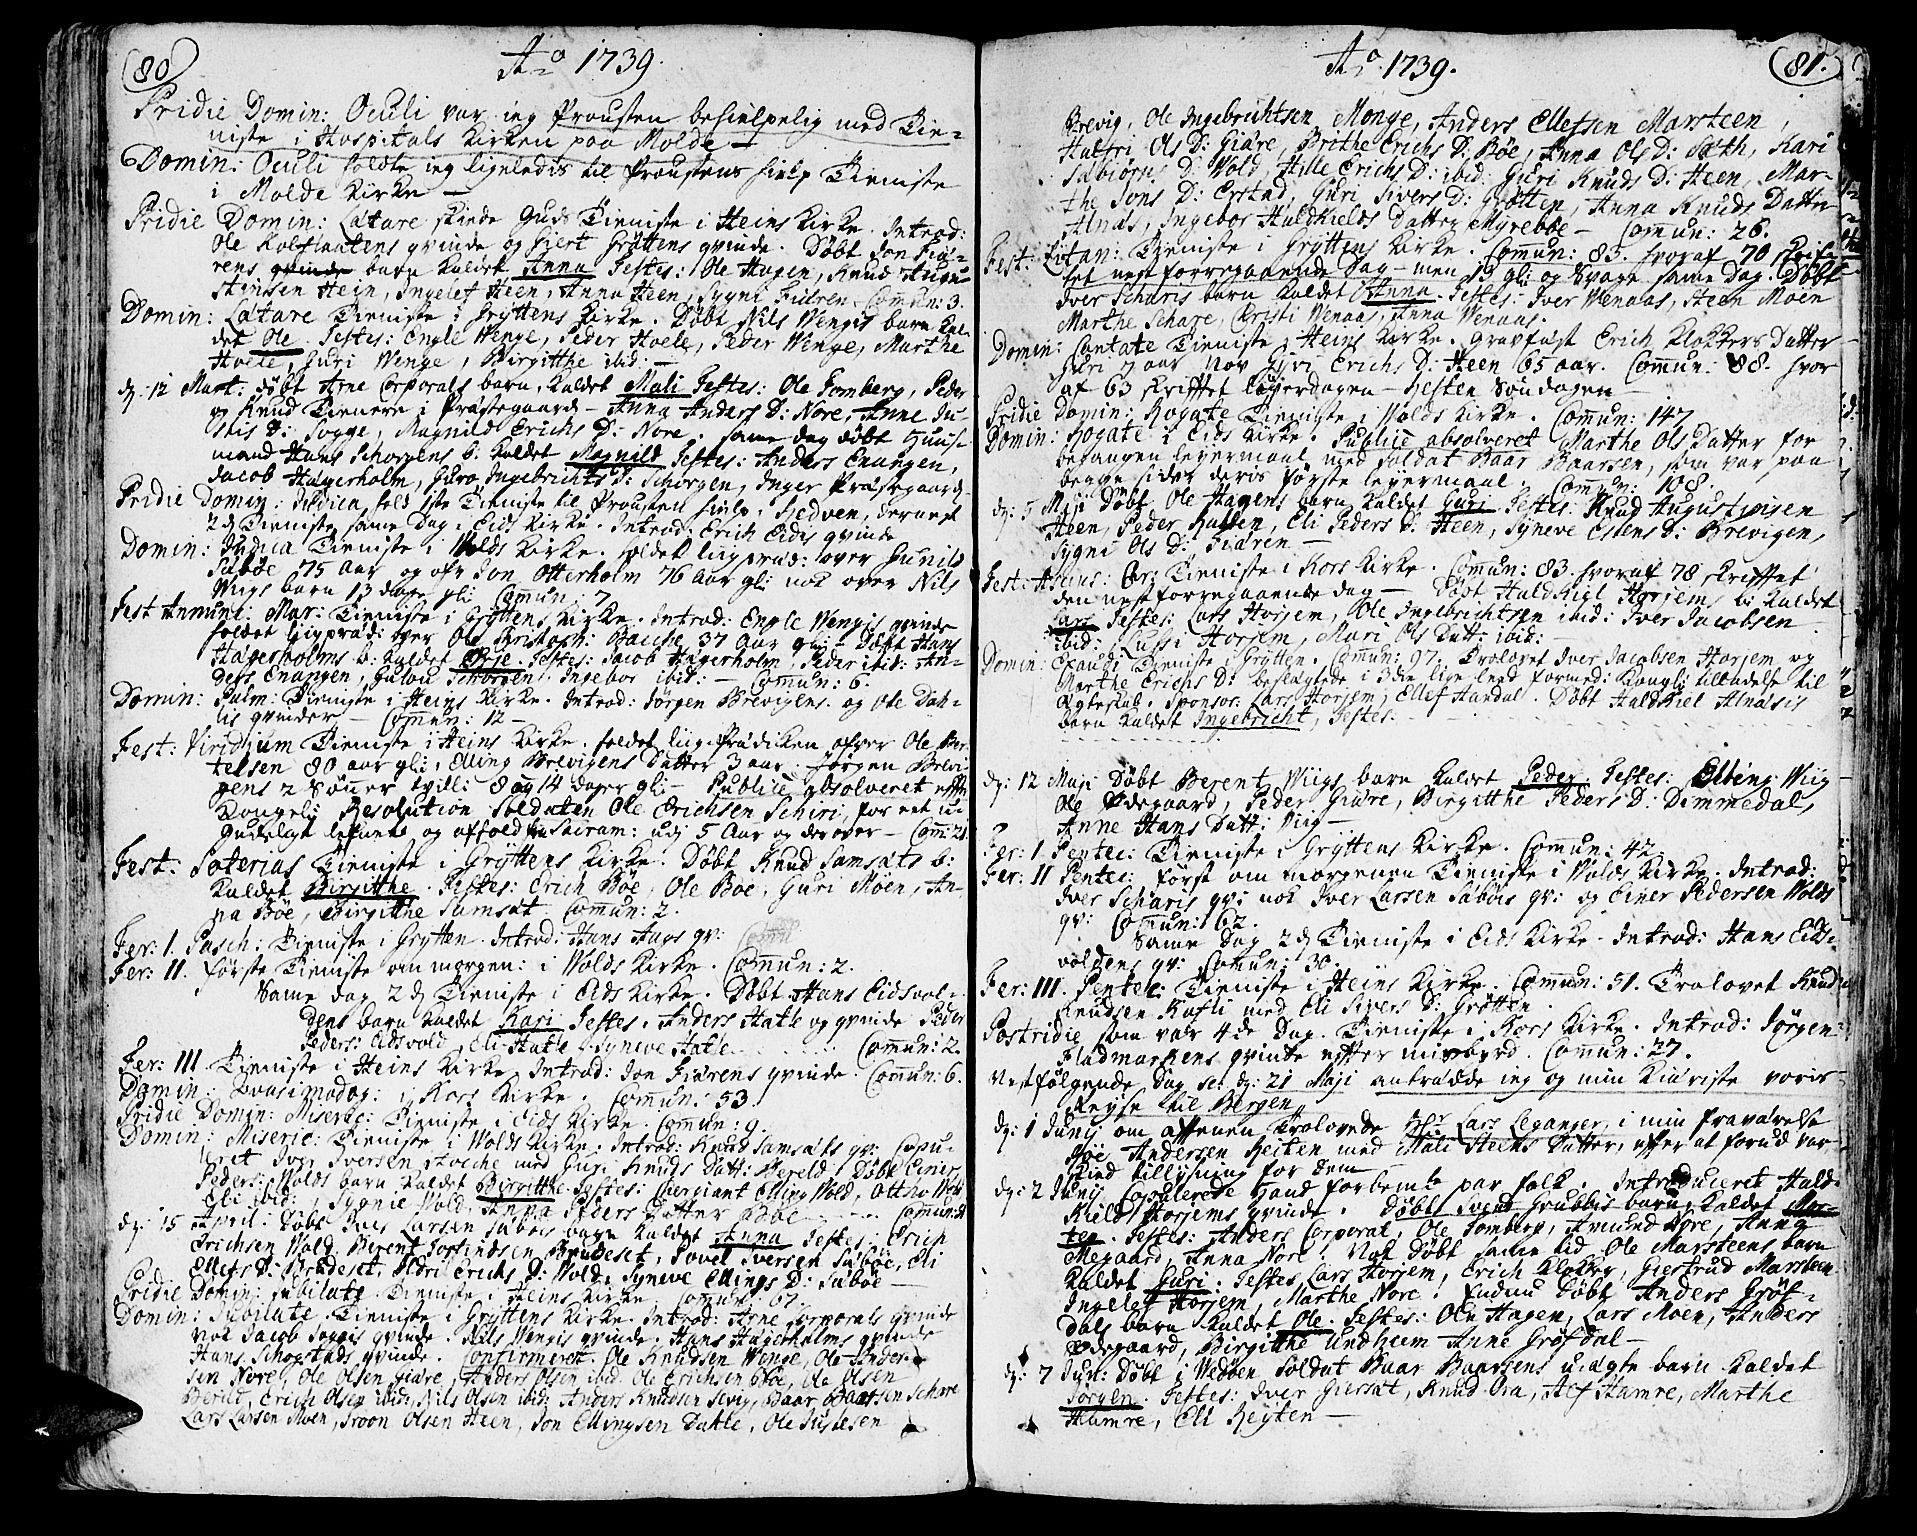 80
Aº 1739.
Pridie Domin: Oculi var ieg Prousten behielpelig med Tie-
niste i Hospitals Kirken paa Molde —
Domin: Oculi holdte ieg ligeledis til Proustens hielp Tieniste
i Molde Kirke —
Pridie Domin: Lætare skiede Guds Tieniste i Heins Kirke. Introd:
Ole Kolflaatens qvinde og Siert Grøttens qvinde. Døbt Jon Fiæ-
rens qvinde barn kaldet Anna Testes: Ole Hagen, Knud Augu-
stinsen Hein, Ingelef Heen, Anna Heen, Sygni Fiæren. Comun: 3.
Domin: Lætare Tieniste i Gryttens Kirke. Døbt Nils Wengis barn kal-
det Ole. Testes: Engle Wenge, Peder Hoele, Peder Wenge, Marthe
Hoele, Guri Wenge, Birgitthe ibid: —
dj. 12 Mart: døbt Arne Corporals barn, kaldet Mali Testes: Ole Fomberg, Peder
og Knud Tienere i Præstegaard — Anna Anders D: Nore, Anne Ju-
stis D: Sogge, Magnild Erichs D: Nore. same dag døbt Huus-
mand Hans Schorgens b: kaldet Magnild Testes: Anders Enangen,
Jacob Hagerholm, Guro Ingebrichts D: Schorgen, Inger Præstegaard.
Pridie Domin: Judica hold 1ste Tieniste til Prousten hielp i Hedven, dernest
2d Tieniste same Dag i Eids Kirke. Introd: Erich Eidis qvinde
Domin: Judica Tieniste i Wolds Kirke. holdet liigpræd: over Gunild
Sæbøe 75 aar og ofr Jon Otterholm 76 Aar gl: nok over Nils
Wiigs barn 13 dage gl: Comun: 7
Fest Annunt: Mar: Tieniste i Gryttens Kirke. Introd: Engle Wengis qvinde
holdet ligpræd: over Ole Christoph: Bache 37 Aar gl: — Døbt Hans
Hagerholms b: kaldet Brje. Testes: Jacob Hagerholm, Peder ibid: An-
ders Enangen, Gulou Schorgen. Ingebor ibid: — Comun: 6.
Domin: Palm: Tieniste i Heins Kirke. Introd: Jørgen Brevigens og Ole Dah-
lis qvinder — Comun: 12 —
Fest: Viridium Tieniste i Heins Kirke. holdet liig Prædiken ofver Ole Ber-
telsen 80 aar gl:, Elling Brevigens Datter 3 aar. Jørgen Brevi-
gens 2 Sønner tvill: 8 og 14 Dager gl: — Publicè absolveret efter
Kongel: Resolution Soldaten Ole Erichsen Schiri, for et u-
gudeligt lefnet og affold fra Sacram: udj 5 Aar og derover — Com: 21
Fest: Soterias Tieniste i Gryttens Kirke. Døbt Knud Samsæts b:
kaldet Birgitthe. Testes: Erich Bøe, Ole Bøe, Guri Møen, An-
na Bøe, Birgitthe Samsæt Comun: 2.
Fer: I. Pasch: Tieniste i Grytten. Introd: Hans Aags qv:
Fer: II. første Tieniste om morgen: i Wolds Kirke. Comun: 2.
Same dag 2d Tieniste i Eids Kirke. Døbt Hans Eidsvol-
dens barn kaldet Kari Testes. Anders Hatle og qvinde Peder
Peders: Eidsvold, Eli Hatle, Syneve Hatle . . . Comun: 2.
Fer: III Tieniste i Heins Kirke. Introd: Jon Fiærens qvinde. Comun: 6.
Domin. Qvasimodog: i Kors Kirke. Comun: 53.
Pridie Domin: Miseric: Tieniste i Eids Kirke. Comun: 9.
Domin: Miseric: Tieniste i Wolds Kirke. Introd: Knud Samsæts qv: Copu-
leret Iver Iversen Hoche med Guri Knuds Datt: Bereld. Døbt Einer
Peders: Wolds barn kaldet Birgitthe. Testes: Sergiant Elling Wold, Ottho Wold,
Eli ibid:, Sygnie Wold, Anna Peders Datter Bøe — Comun: 21
dj: 15 April: døbt Iver Larsen Sæbøis barn kaldet Anna Testes: Erich
Erichsen Wold, Berent Tostindsen Brudeset, Sovel Iversen Sæbøe, Eli
Ellefs D: Brudeset, Eldri Erichs D: Wold, Syneve Ellings D: Sæbøe —
Pridie Domin: Jubilate Tieniste i Heins Kirke. Comun: 67.
Domin: Jubilate Tieniste i Gryttens Kirke. Introd: Arne Corporals qvinde
nok Jacob Soggis qvinde. Nils Wengis qvinde. Hans Hagerholms qvinde
Hans Schogstads qvinde. Confirmeret. Ole Knudsen Wenge, Ole Ander-
sen Nore, Ole Olsen Giære, Anders Olsen ibid. Ole Erichsen Bøe, Ole Olsen
Berild, Erich Olsen ibid: Nils Olsen ibid: Anders Knudsen Sevig, Baar Baarsen Schare
Lars Larsen Moen, Troon Olsen Heen, Jon Ellingsen Dahle, Ole Justesen
81.
Aº 1739.
Brevig, Ole Ingebrichtsen Monge, Anders Ellefsen Marsteen,
Halfri Ols D: Giære, Brithe Erichs D: Bøe, Anna Ols D: Sæth, Kari
Sæbiørns D: Wold, Hille Erichs D: ibid: Guri Knuds D: Heen, Mar-
the Jons D: Erstad, Guri Sivers D: Grøtten, Anna Knuds Datter
Alnæs, Ingebor Haldkields Datter Myrebøe — Comun: 26.
Fest: Litan: Tieniste i Gryttens Kirke. Comun: 83. hvoraf 70 skrif-
tet nest forregaaende Dag — men 13 gl: og svage same Dag. Døbt
Iver Scharis barn kaldet Anna. Testes: Iver Wenaas, Steen Moen
Marthe Schare, Christi Wenaas, Anna Wenaas.
Domin: Cantate Tieniste i Heins Kirke. Gravfæst Erich Klokkers Datter
Guri 7 aar nok Gyri Erichs D: Heen 65 aar. Comun: 88. hvor
af 63 skrifftet Løverdagen — Resten Søndagen —
Pridie Domin: Rogate Tieniste i Wolds Kirke. Comun: 147
Domin: Rogate i Eids Kirke. Publicè absolveret Marthe Ols Datter for
begangen leyermaal med soldat Baar Baarsen, som var paa
begge sider deris første leyermaal. Comun: 108.
dj: 5 Maji Døbt Ole Hagens barn kaldet Guri Testes: Knud Augustinsen
Heen, Peder Halden, Eli Peders D: Heen, Syneve Estens D: Brevigen,
Sygni Ols D: Fiæren —
Fest: Ascens: Chr: Tieniste i Kors Kirke. Comun: 83. hvoraf 78 skrifftet
den nest forregaaende dag — Døbt Haldkiel Horjems b: kaldet
Lars Testes: Lars Horjem, Ole Ingebrichtsen ibid: Iver Jacobsen
ibid: Lussi Horjem, Mari Ols Datt: ibid: —
Domin: Exaudi Tieniste i Grytten. Comun: 97. Trolovet Iver Jacobsen Horjem og
Marthe Erichs D: beslegtede i 3die lige leed formed: Kongl: tilladelse til
Egteskab. Sponsor: Lars Horjem, Ellef Hardal. Døbt Haldkiel Alnæsis
barn kaldet Ingebricht, Testes.
dj: 12 Maji Døbt Berent Wiigs barn kaldet Peder. Testes: Elling Wiig
Ole Ødegaard, Peder Giære, Birgitthe Peders D: Dimmedal,
Anne Hans Datt: Wiig —
Fer: I Pentec: Tieniste i Gryttens Kirke. Comun: 42.
Fer: II Pentec: først om morgenen Tieniste i Wolds Kirke. Introd:
Iver Scharis qv: nok Iver Larsen Sæbøis qv: og Einer Pedersen Wolds
qv: Comun: 62.
Same Dag 2d Tieniste i Eids Kirke. Introd: Hans Eids-
voldens qv: Comun: 30.
Fer: III. Pentec: Tieniste i Heins Kirke. Comun: 51. Trolovet Knud
Knudsen Kafli med Eli Sivers D: Grøtten.
Postridie som var 4de Dag. Tieniste i Kors Kirke. Introd: Jørgen
Fladmarkens qvinde efter misbyrd. Comun: 27.
Nestfølgende Dag sc: dj: 21 Maji antrædde ieg og min Kiæriste voris
Reyse til Bergen
dj: 1 Junij om afftenen trolovede Hr Lars Leganger, i min fraværelse
Joe Andersen Reiten med Mali Steens Datter, effter at forud var
skeed tillysning for dem —
dj: 2 Junij Copulerede hand forbemte par folk. Introduceret Hald-
kield Horjems qvinde. Døbt Svend Grubbis barn, kaldet Mor-
ten. Testes: Anders Corporal, Ole Fomberg, Amund Nore, Anna
Megaard, Anna Nore. Nok døbt same tid Ole Marsteens barn
kaldet Guri. Testes, Lars Horjem, Erich Klokker, Giertrud Marsteen
Ingelef Horjem, Marthe Nore. Endnu Døbt Anders Grøf-
dals barn kaldet Ole. Testes: Ole Hagen, Lars Moen, Anders
Ødegaard, Birgitthe Undheim Anne Grøfdal —
dj: 7 Jun: Døbt i Vedøen Soldat Baar Baarsens uægte barn kaldet
Jørgen. Testes: Iver Giersæt, Knud Ora, Alf Hamre, Marthe
Hamre, Eli Reyten —